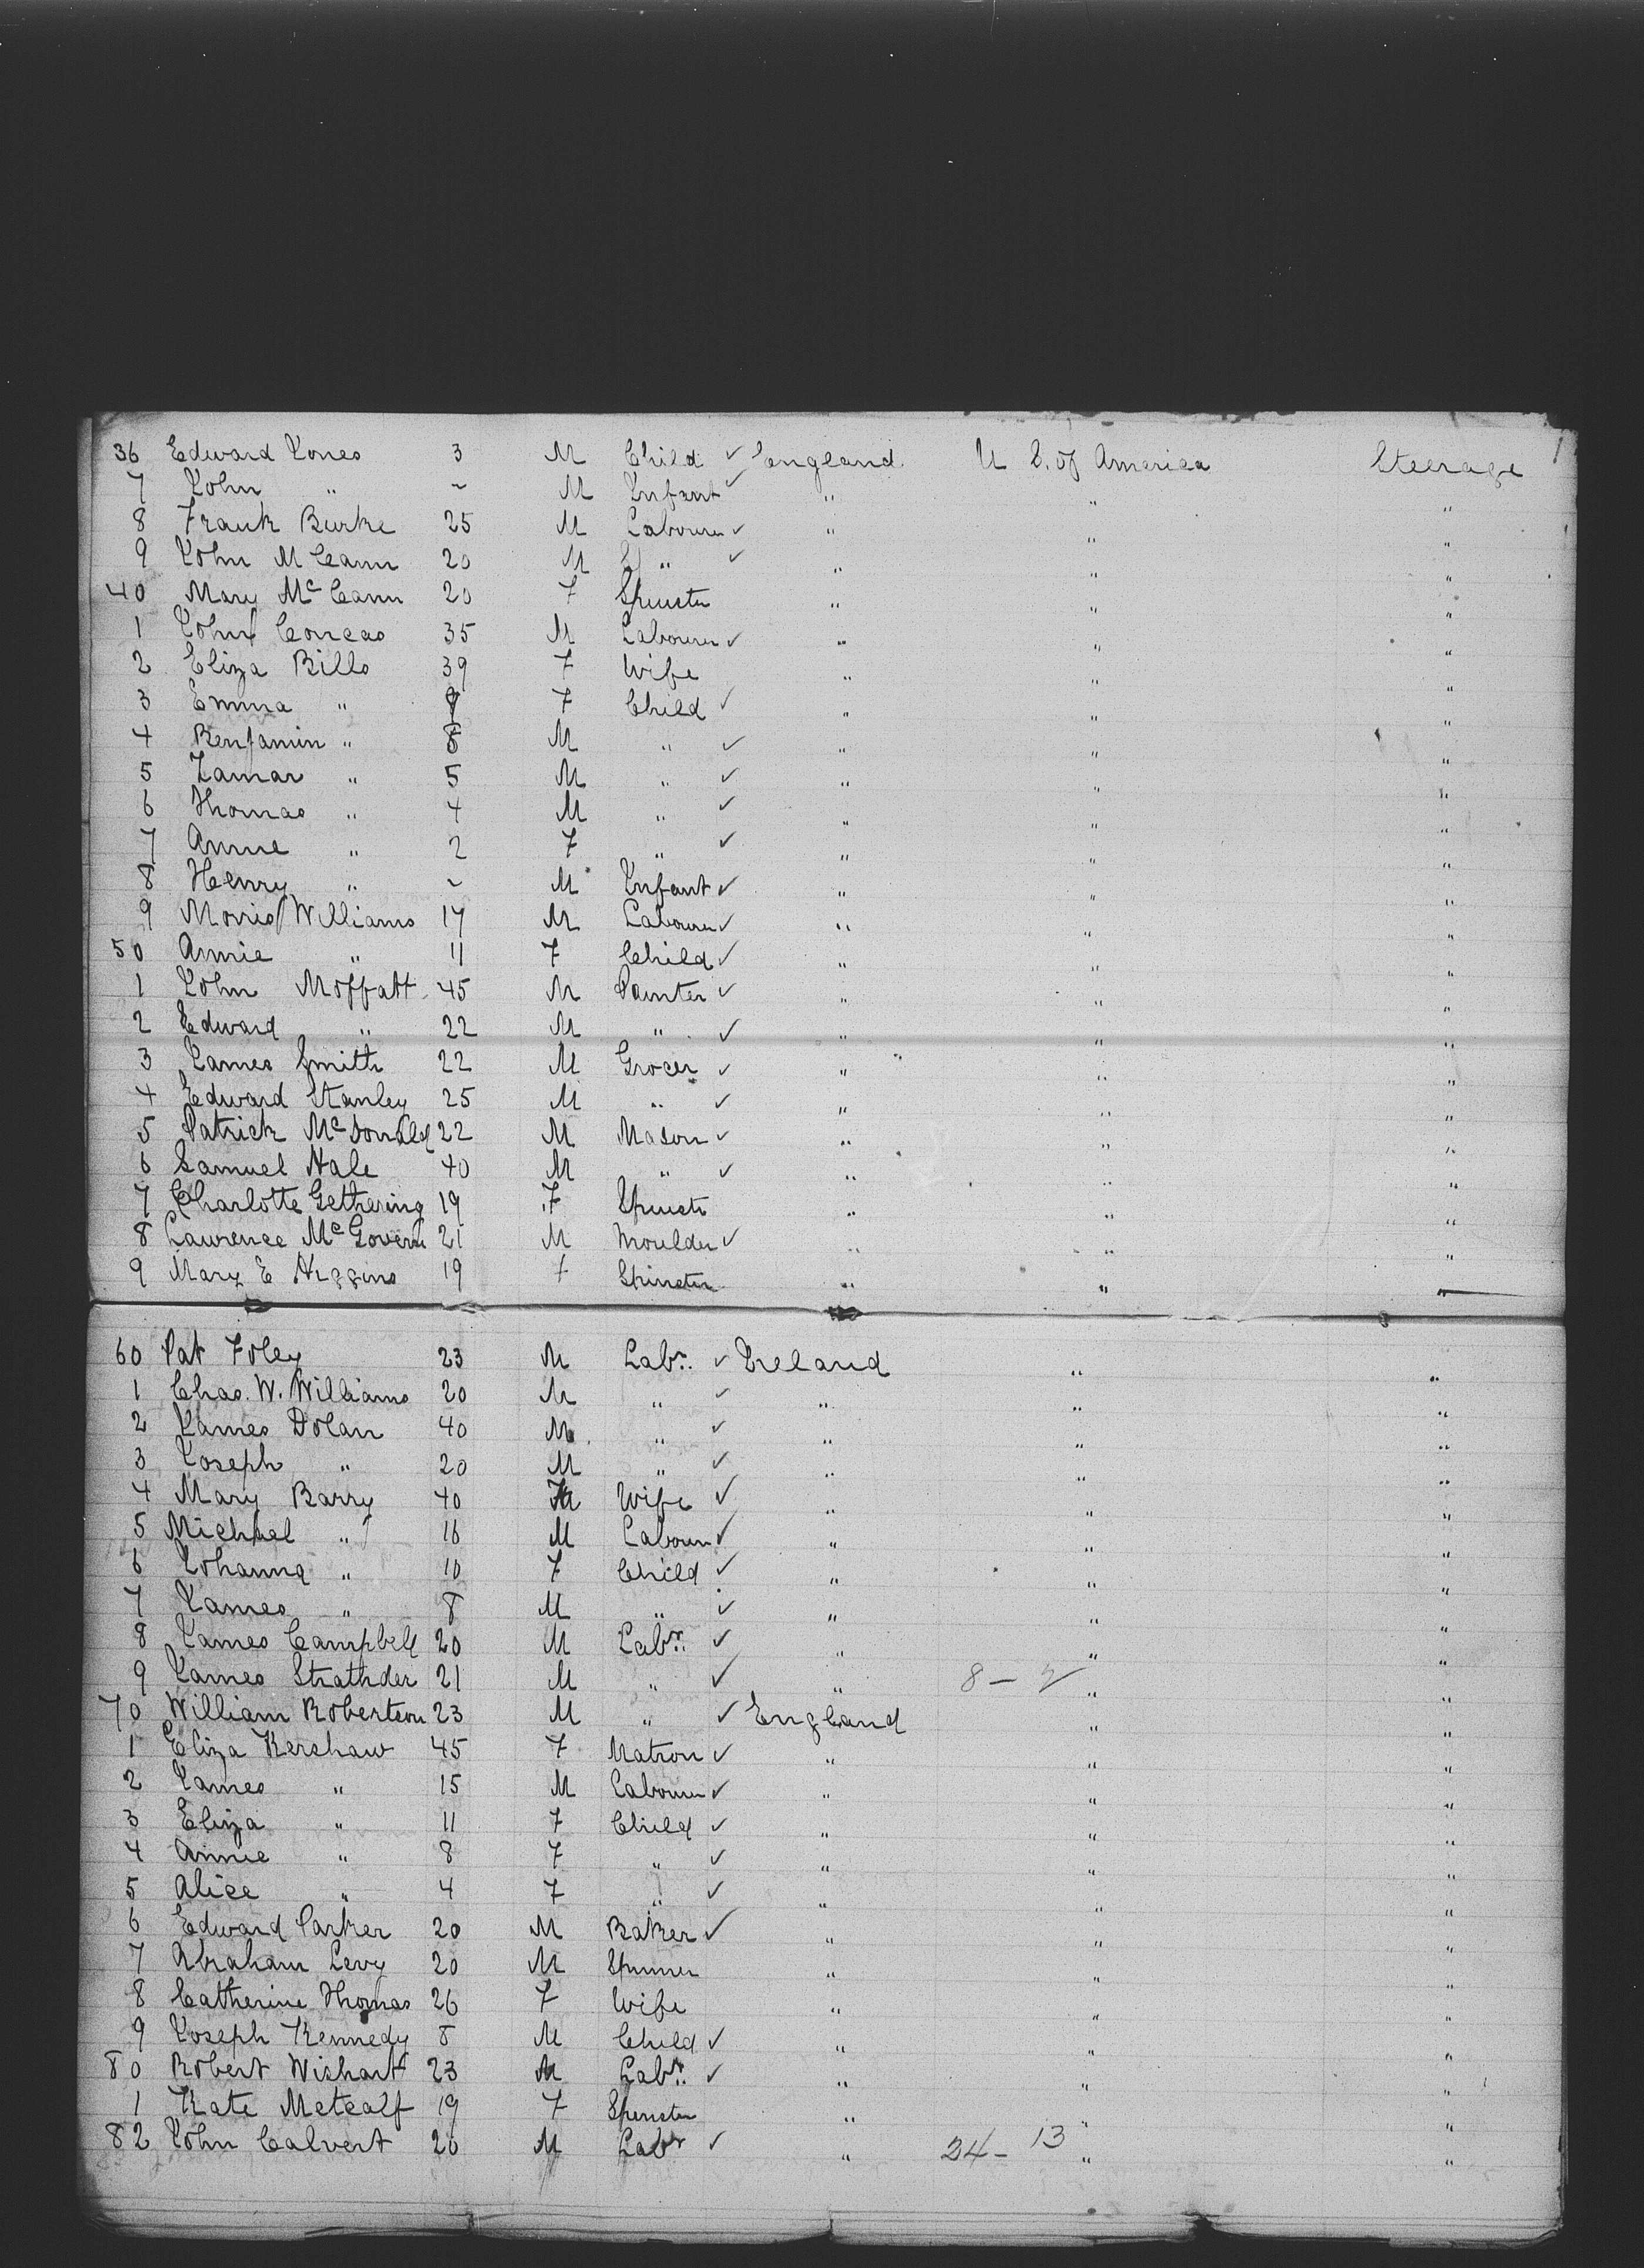 36 Edward Jones 3 M Child ✓ England U S. of America Steerage
7 John " ~ M Infant ✓ " " "
8 Frank Burke 25 M Labourer ✓ " " "
9 John McCann 20 M " ✓ " " "
40 Mary McCann 20 F Spinster " " "
1 John 35 M Labourer ✓ " " "
2 Eliza Bills 39 F Wife " " "
3 Emma " F Child ✓ " " "
4 Benjamin " 8 M " ✓ " " "
5 " 5 M " ✓ " " "
6 Thomas " 4 M " ✓ " " "
7 Annie " 2 F " ✓ " " "
8 Henry " ~ M Infant ✓ " " "
9 Morris Williams 17 M Labourer ✓ " " "
50 Annie " 11 F Child ✓ " " "
1 John Moffatt 45 M Painter ✓ " " "
2 Edward " 22 M " ✓ " " "
3 James Smith 22 M Grocer ✓ " " "
4 Edward Stanley 25 M " ✓ " " "
5 Patrick McDonald 22 M Mason ✓ " " "
6 Samuel Hale 40 M " ✓ " " "
7 Charlotte Gethering 19 F Spinster " " "
8 Laurence McGovern 21 M Moulder ✓ " " "
9 Mary E Higgins 19 F Spinster " " "
60 Pat Foley 23 M Labr. ✓ Ireland " "
1 Chas. W. Williams 20 M " ✓ " " "
2 James Dolan 40 M " ✓ " " "
3 Joseph " 20 M " ✓ " " "
4 Mary Barry 40 F Wife ✓ " " "
5 Michael " 16 M Labourer ✓ " " "
6 Johanna " 10 F Child ✓ " " "
7 James " 8 M " ✓ " " "
8 James Campbell 20 M Labr. ✓ " " "
9 James Strathder 21 M " ✓ " 8 - 2 " "
70 William Robertson 23 M " ✓ England " "
1 Eliza Kershaw 45 F Matron ✓ " " "
2 James " 15 M Labourer ✓ " " "
3 Eliza " 11 F Child ✓ " " "
4 Annie " 8 F " ✓ " " "
5 Alice " 4 F " ✓ " " "
6 Edward Parker 20 M Baker ✓ " " "
7 Abraham Levy 20 M Spinner " " "
8 Catherine Thomas 26 F Wife " " "
9 Joseph Kennedy 8 M Child ✓ " " "
80 Robert Wishart 23 M Labr. ✓ " " "
1 Kate Metcalf 19 F Spinster " " "
82 John Calvert 20 M Labr ✓ " 24 - 13 " "